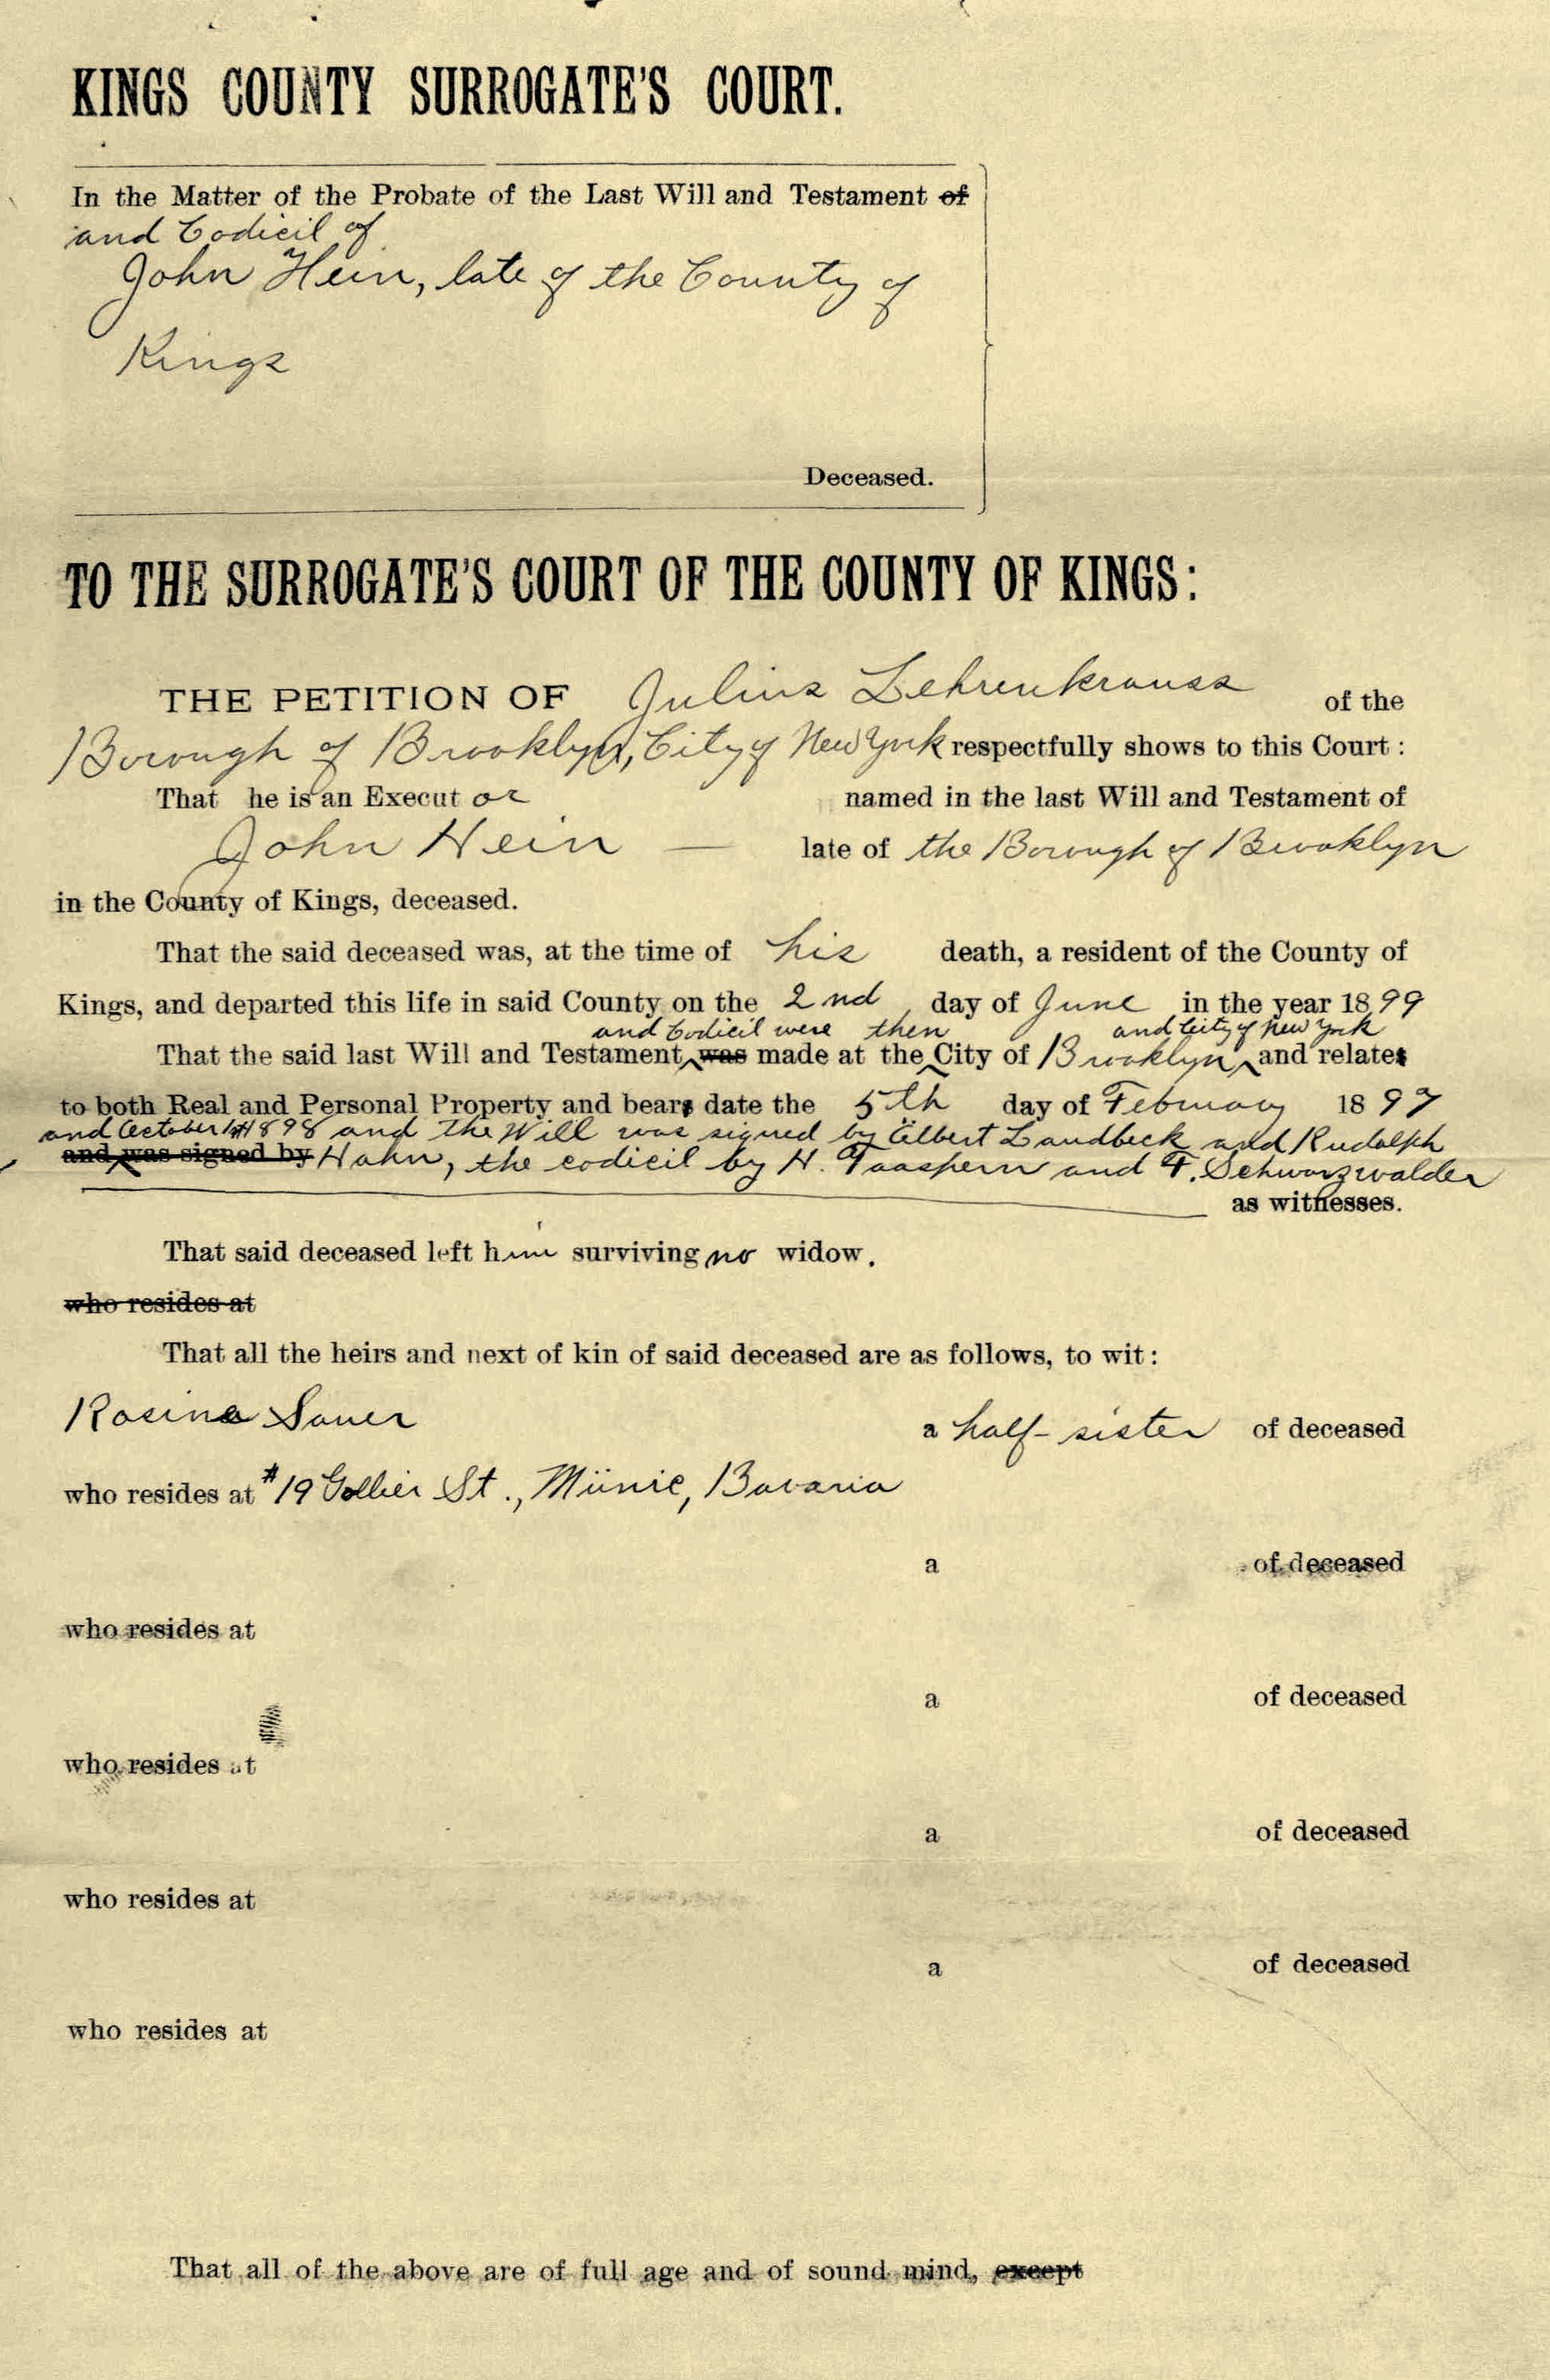 KINGS COUNTY SURROGATE'S COURT.
In the Matter of the Probate of the Last Will and Testament of
and Codicil of
John Hein, late of the County of
Kings
Deceased.
TO THE SURROGATE'S COURT OF THE COUNTY OF KINGS:
THE PETITION OF Julius Lehrenkrauss of the
Borough of Brooklyn, City of New York respectfully shows to this Court:
That he is an Executor named in the last Will and Testament of
John Hein late of the Borough of Brooklyn
in the County of Kings, deceased.
That the said deceased was, at the time of his death, a resident of the County of
Kings, and departed this life in said County on the 2nd day of June in the year 1899
and Codicil were then and City of New York
That the said last Will and Testament was made at the City of Brooklyn and relates
to both Real and Personal Property and bears date the 5th day of February 1897
and October 1898 and the Will was signed by Albert Landbeck and Rudolph
and was signed by Hahn, the codicil by H. and F. Schwarzwalder
as witnesses.
That said deceased left him surviving no widow.
who resides at
That all the heirs and next of kin of said deceased are as follows, to wit:
Rosina Sauer a half-sister of deceased
who resides at #19 Gollier St., Münic, Bavaria
a of deceased
who resides at
a of deceased
who resides at
a of deceased
who resides at
a of deceased
who resides at
That all of the above are of full age and of sound mind, except